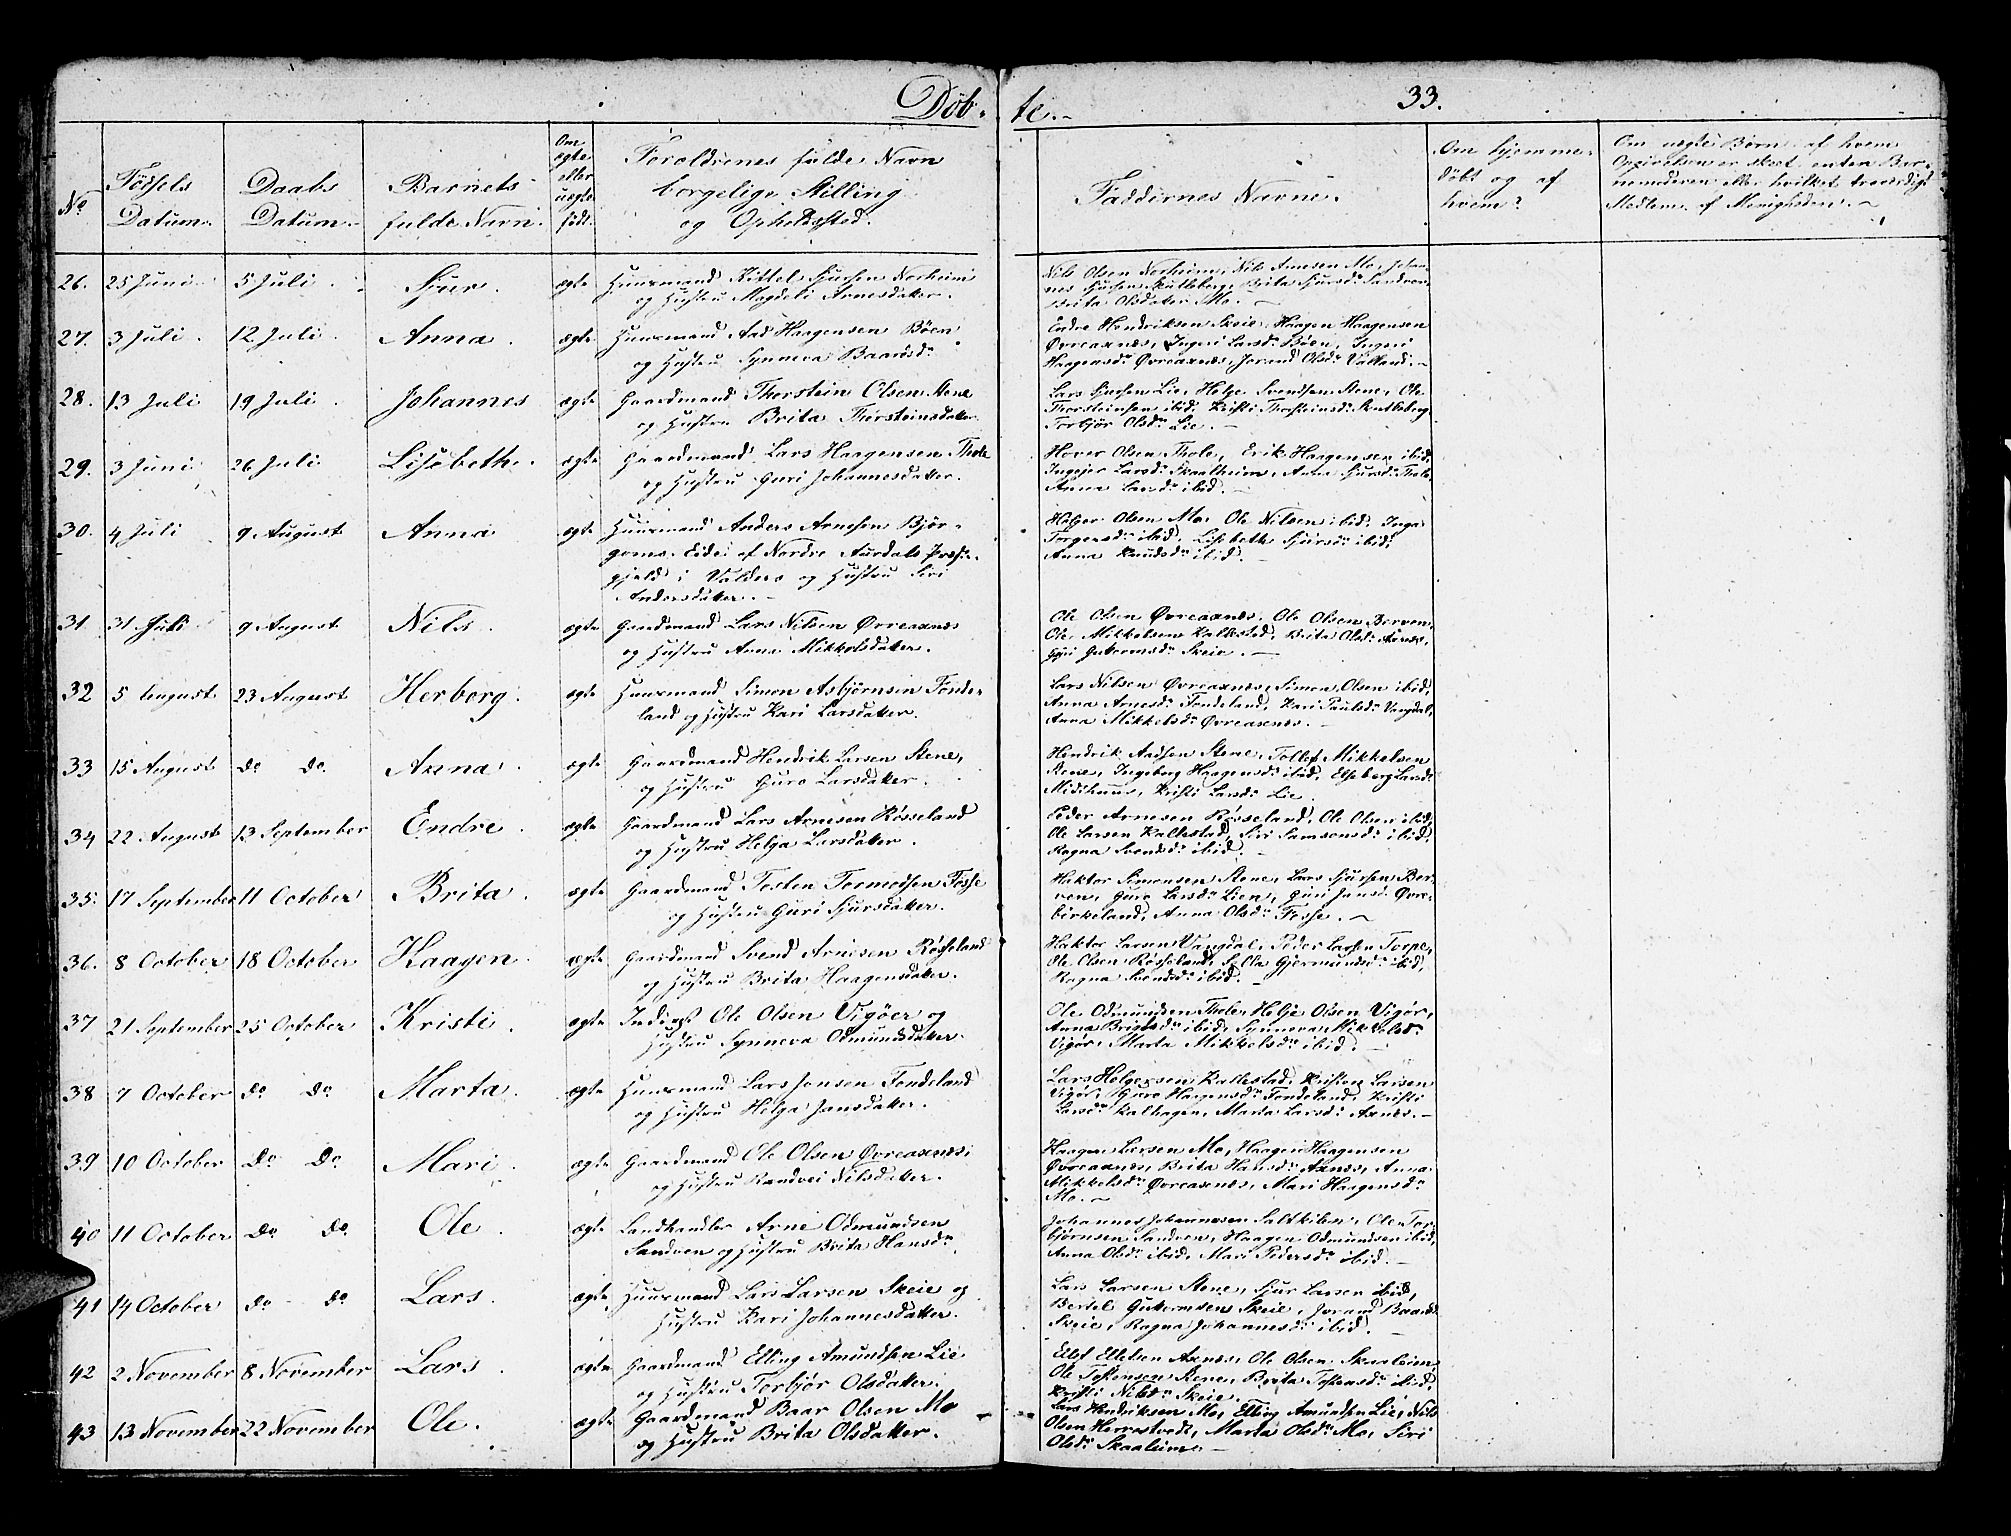 Døb-
te.-
33.
No
Fødsels
Datum.
Daabs
Datum.
Barnets
fulde Navn.
Om
ægte
eller
uægte
født.
Forældrenes fulde Navn
borgelige Stilling
og Opholdssted.
Faddernes Navne.
Om hjemme-
døbt og af
hvem?
Om uægte Børn, af hvem
Opgivelsen er skeet, enten Bar-
nemoderen eller hvilket troværdigt
Medlem af Menigheden.
26. 25 Juni 5 Juli Sjur. ægte Huusmand Kittel Sjursen Norheim
og Hustru Magdeli Arnesdatter.
Nils Olsen Norheim, Nils Arnesen Mo, Johan-
nes Sjursen Skutleberg, Brita Sjursdr Sandven,
Brita Olsdatter Mo.
27. 3 Juli 12 Juli Anna. ægte Huusmand Aad Haagensen Bøen
og Hustru Synneva Baardsdr
Endre Hendriksen Skeie, Haagen Haagensen
Øvreaxnes, Ingeri Larsdr Bøen, Ingeri
Haagensdr Øvreaxnes, Jorand Olsdr Valland.
28. 13 Juli 19 Juli Johannes ægte Gaardmand Thorstein Olsen Stene
og Hustru Brita Thorsteinsdatter
Lars Sjursen Lie, Helge Svendsen Stene, Ole
Thorsteinsen ibid, Kristi Thorsteinsdr Skutleberg
Torbjør Olsdr Lie.
29. 3 Juni 26 Juli Lisebeth. ægte Gaardmand Lars Haagensen Thole
og Hustru Guri Johannesdatter.
Haver Olsen Thole, Erik Haagensen ibid,
Ingejer Larsdr Skaalheim, Anna Sjursdr Thole,
Anna Larsdr ibid.
30. 4 Juli 9 August Anna ægte Huusmand Anders Arnesen Bjør-
goms Eide af Nordre Aurdals Præste-
gjeld i Valders og Hustru Siri
Andersdatter.
Holger Olsen Mo, Ole Nilsen ibid, Inga
Torgersdr ibid, Lisebeth Sjursdr ibid,
Anna Knudsdr ibid.
31 31 Juli 9 August Nils. ægte Gaardmand Lars Nilsen Øvreaxnes
og Hustru Anna Mikkelsdatter.
Ole Olsen Øvreaxnes, Ole Olsen Berven,
Ole Mikkelsen Kallestad, Brita Olsdr Axnes,
Guri Guttormsdr Skeie.
32 5 August 23 August Herborg. ægte Huusmand Simon Asbjørnsen Fonde-
land og Hustru Kari Larsdatter.
Lars Nilsen Øvreaxnes, Simon Olsen ibid,
Anna Arnesdr Fondeland, Kari Paulsdr Vangdal,
Anna Mikkelsdr Øvreaxnes.
33 15 August do do. Anna. ægte Gaardmand Hendrik Larsen Stene,
og Hustru Guro Larsdatter.
Hendrik Aadsen Stene, Tollef Mikkelsen
Stene, Ingeborg Haagensdr ibid, Elseberg Larsdr
Midthuus, Kristi Larsdr Lie
34 22 August 13 September Endre. ægte Gaardmand Lars Arnesen Røsseland
og Hustru Helga Larsdatter.
Peder Arnesen Røsseland, Ole Olsen ibid,
Ole Larsen Kallestad, Siri Samsonsdr ibid,
Ragna Svendsdr ibid.
35. 17 September 11 October Brita. ægte Gaardmand Tosten Tormodsen Fosse
og Hustru Guri Sjursdatter.
Haktor Simonsen Stene, Lars Sjursen Ber-
ven, Guro Larsdr Lien, Guri Jansdr Øvre-
birkeland, Anna Olsdr Fosse.
36. 8 October 18 October Haagen. ægte Gaardmand Svend Arnesen Røsseland
og Hustru Brita Haagensdatter.
Haktor Larsen Vangdal, Peder Larsen Torpe,
Ole Olsen Røsseland, Gjermundsdr ibid,
Ragna Svendsdr ibid.
37 21 September 25 October Kristi. ægte Inderst Ole Olsen Vigøer og
Hustru Synneva Odmundsdatter.
Ole Odmundsen Thole, Helje Olsen Vigør,
Anna ibid, Synneva Mikkelsdr
Vigør, Marta Mikkelsdr ibid.
38 7 October do do Marta. ægte Huusmand Lars Jonsen Fondeland
og Hustru Helga Jansdatter.
Lars Helgesen Kallestad, Kristen Larsen
Vigør, Guro Haagensdr Fondeland, Kristi
Larsdr Kalhagen, Marta Larsdr Axnes.
39 10 October do do. Mari. ægte Gaardmand Ole Olsen Øvreaxnes,
og Hustru Randvei Nilsdatter.
Haagen Larsen Mo, Haagen Haagensen
Øvreaxnes, Brita Hansdr Axnes, Anna
Mikkelsdr Øvreaxnes, Mari Haagensdr
Mo.
40 11 October do do Ole. ægte Landhandler Arne Odmundsen
Sandven og Hustru Brita Hansdr
Johannes Johannesen Saltkilen, Ole Tor-
bjørnsen Sandven, Haagen Odmundsen ibid,
Anna Olsdr ibid, Mari Pedersdr ibid.
41 14 October do do Lars. ægte Huusmand Lars Larsen Skeie og
Hustru Kari Johannesdatter.
Lars Larsen Stene, Sjur Larsen ibid,
Bertel Guttormsen Skeie, Jorand Baardsdr
Skeie, Ragna Johannesdr ibid.
42 2 November 8 November Lars. ægte Gaardmand Elling Amundsen Lie
og Hustru Torbjør Olsdatter.
Ellef Ellefsen Axnes, Ole Olsen Skaaleim,
Ole Tostensen Stene, Brita Tostensdr ibid,
Kristi Nilsdr Skeie.
43 13 November 22 November Ole. ægte Gaardmand Baar Olsen Mo
og Hustru Brita Olsdatter.
Lars Hendriksen Mo, Elling Amundsen Lie, Nils
Olsen Herrestvedt, Marta Olsdr Mo, Siri
Olsdr Skaaleim.